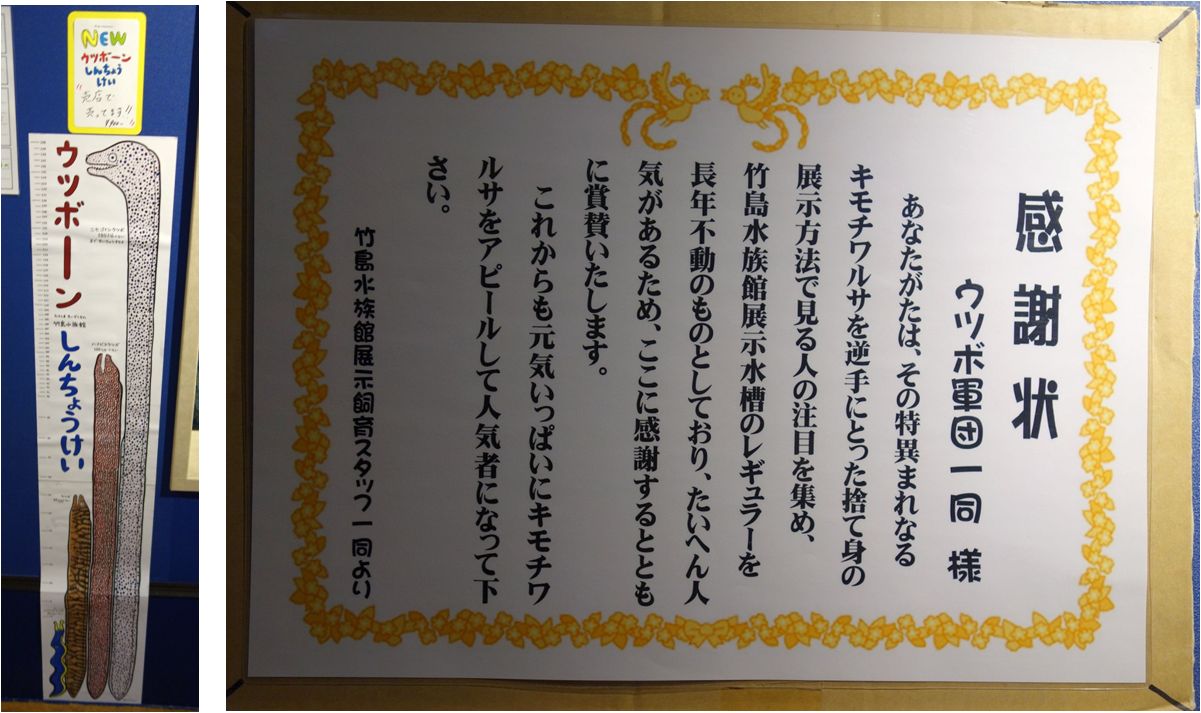 NEW
ウツボーン
しんちょう
けい
売店で
売ってます!!
¥900-
ウツボーン
竹島水族館
しんちょうけい
感謝状
ウツボ軍団一同 様
あなたがたは、その特異まれなる
キモチワルサを逆手にとった捨て身の
展示方法で見る人の注目を集め、
竹島水族館展示水槽のレギュラーを
長年不動のものとしており、たいへん人
気があるため、ここに感謝するととも
に賞賛いたします。
これからも元気いっぱいにキモチワ
ルサをアピールして人気者になって下
さい。
竹島水族館展示飼育スタッフ一同より